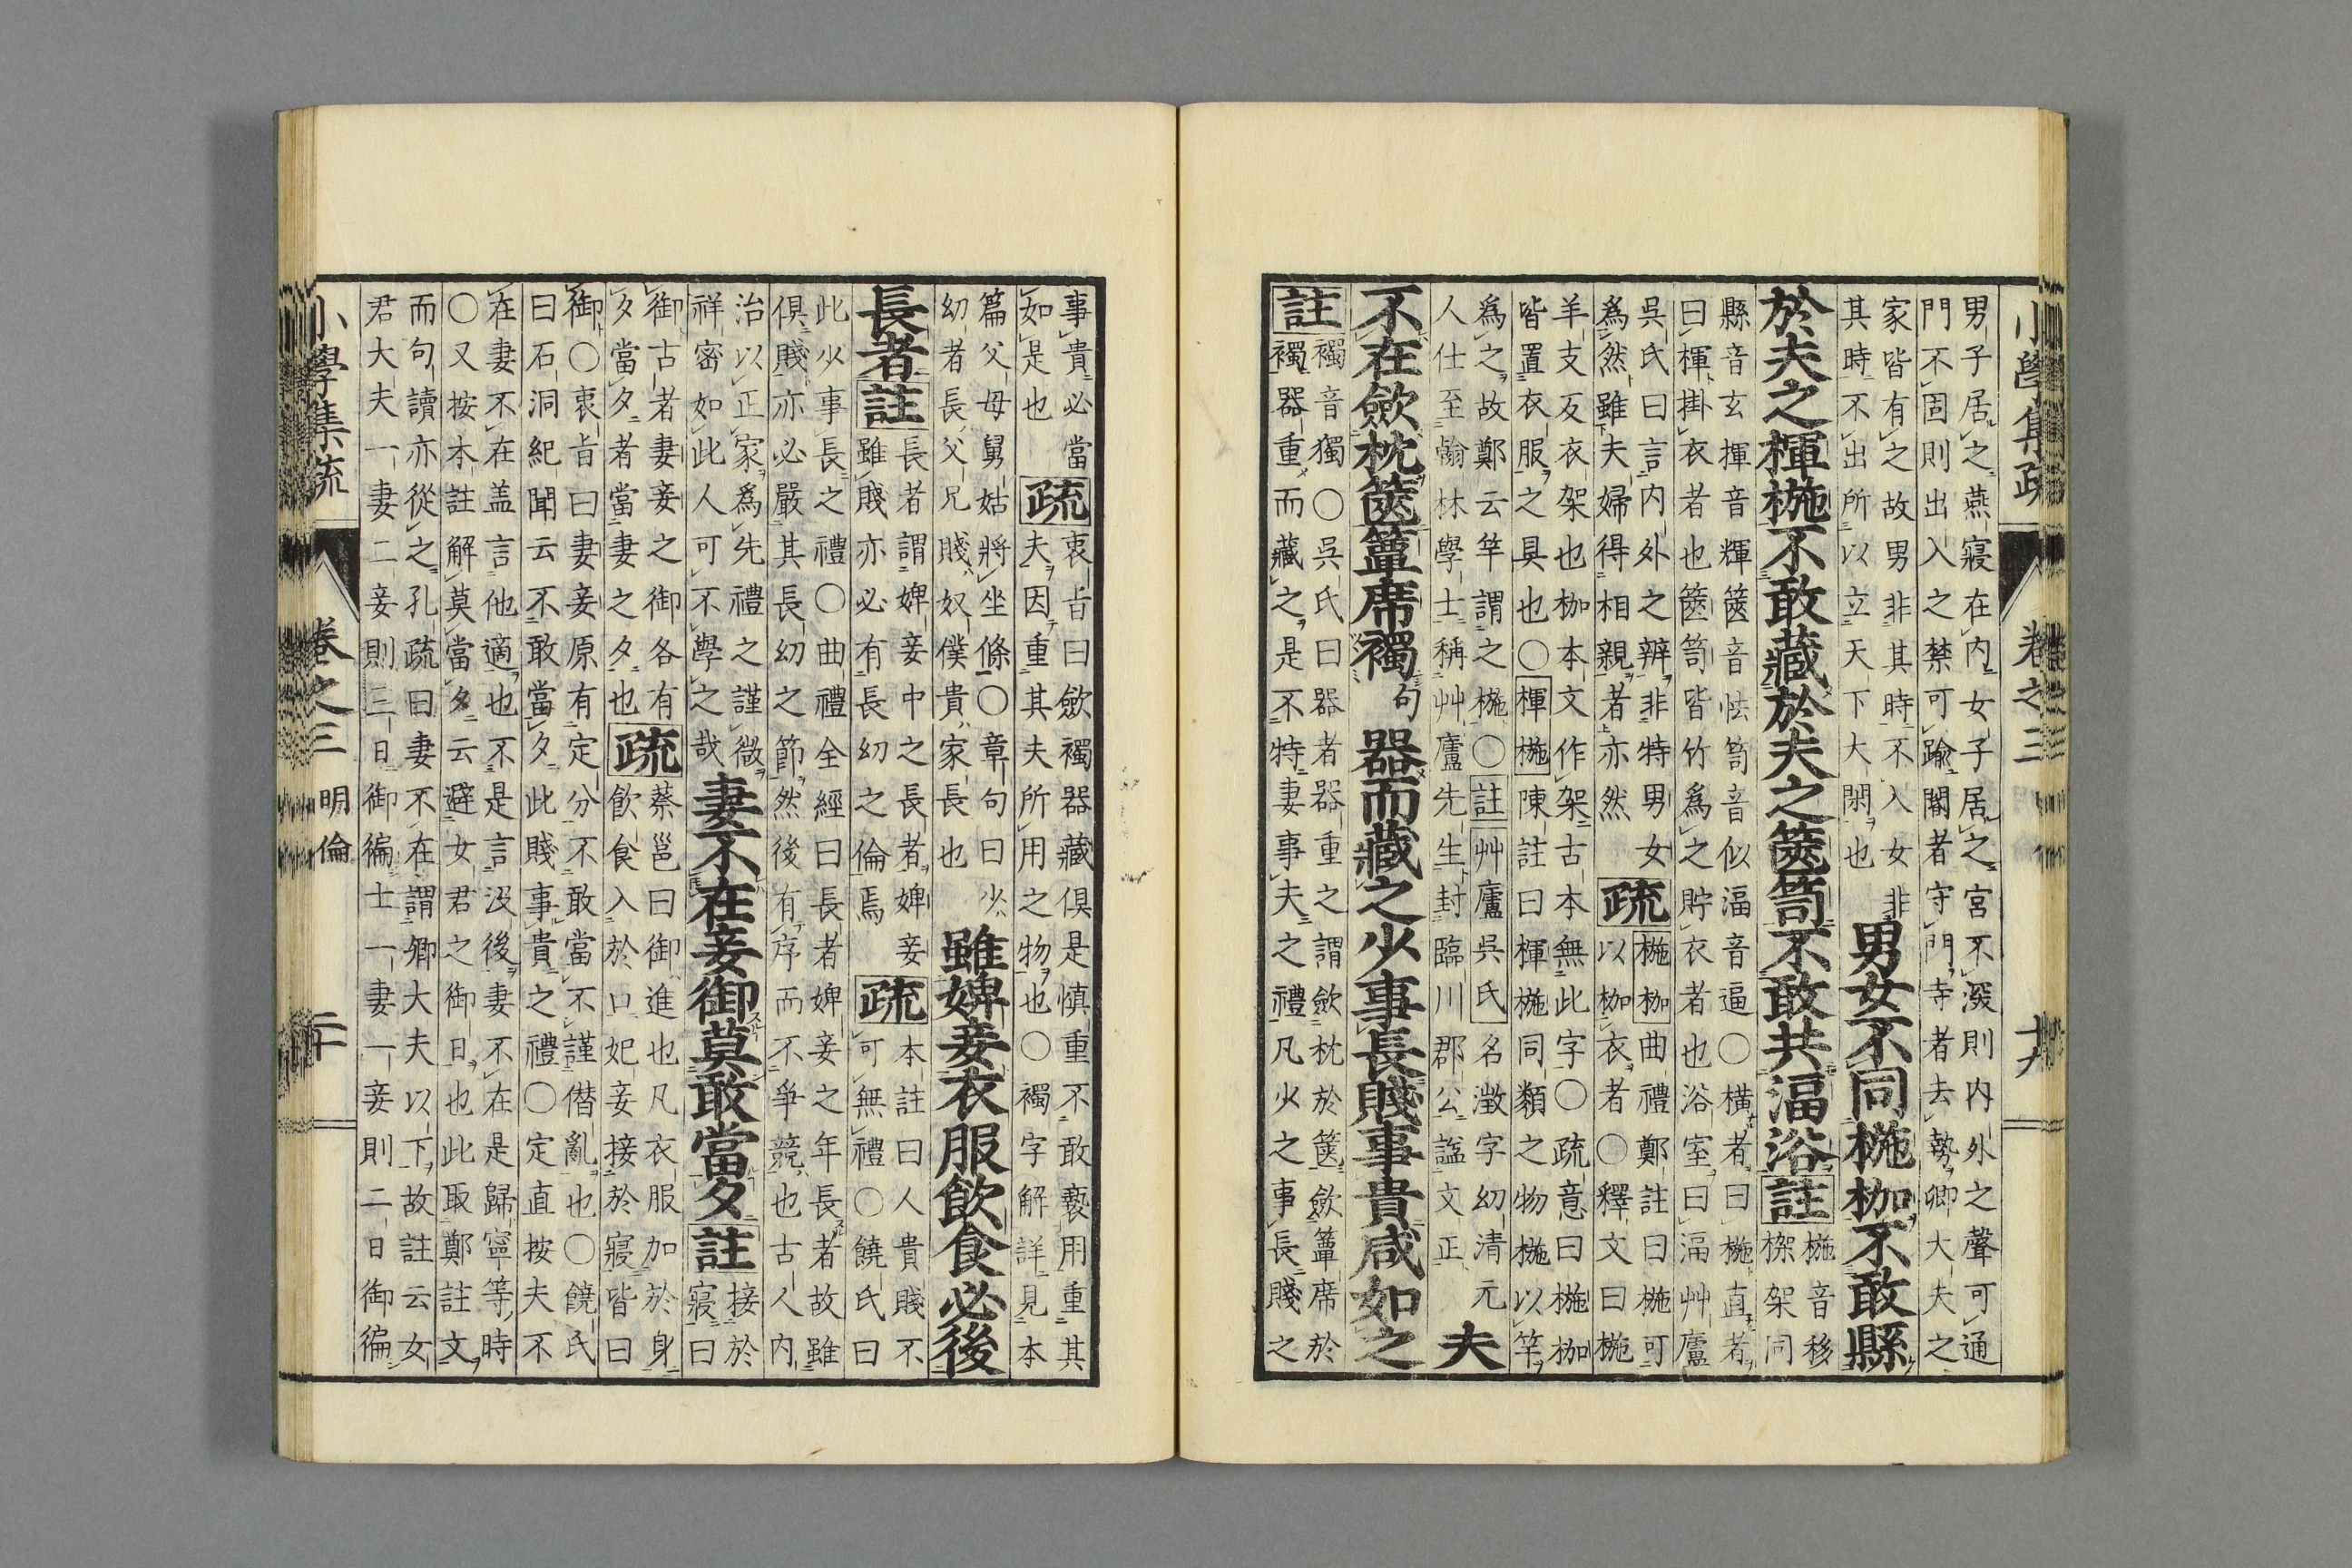 小學集疏 卷之三
男子居之燕寢在内女子居之宮不深則内外之聲可通
門不固則出入之禁可踰閽者守門寺者去勢卿大夫之
家皆有之故男非其時不入女非
其時不出所以立天下大閑也
男女不同椸枷不敢縣
於夫之楎椸不敢藏於夫之篋笥不敢共湢浴
註
椸音移
枷架同
縣音玄楎音輝篋音怯笥音似湢音逼〇横者曰椸直者
曰楎掛衣者也篋笥皆竹爲之貯衣者也浴室曰湢艸廬
吳氏曰言内外之辨非特男女
爲然雖夫婦得相親者亦然
疏
椸枷曲禮鄭註曰椸可
以枷衣者〇釋文曰椸
羊支反衣架也枷本文作架古本無此字〇疏意曰椸枷
皆置衣服之具也〇楎椸陳註曰楎椸同類之物椸以竿
爲之故鄭云竿謂之椸〇註艸廬吳氏名澂字幼清元
人仕至翰林學士稱艸廬先生封臨川郡公諡文正
夫
不在斂枕篋簟席襡句器而藏之少事長賤事貴咸如之
註
襡音獨〇吳氏曰器者器重之謂斂枕於篋斂簟席於
襡器重而藏之是不特妻事夫之禮凡少之事長賤之
事貴必當
如是也
疏
衷旨曰斂襡器藏俱是慎重不敢褻用重其
夫因重其夫所用之物也〇襡字解詳見本
篇父母舅姑將坐條〇章句曰少
幼者長父兄賤奴僕貴家長也
雖婢妾衣服飲食必後
長者
註
長者謂婢妾中之長者婢妾
雖賤亦必有長幼之倫焉
疏
本註曰人貴賤不
可無禮〇饒氏曰
此少事長之禮〇曲禮全經曰長者婢妾之年長者故雖
俱賤亦必嚴其長幼之節然後有序而不爭競也古人内
治以正家爲先禮之謹微
祥密如此人可不學之哉
妻不在妾御莫敢當夕
註
接於
寢曰
御古者妻妾之御各有
夕當夕者當妻之夕也
疏
蔡邕曰御進也凡衣服加於身
飲食入於口妃妾接於寢皆曰
御〇衷旨曰妻妾原有定分不敢當不謹僭亂也〇饒氏
曰石洞紀聞云不敢當夕此賤事貴之禮〇定直按夫不
在妻不在盖言他適也不是言沒後妻不在是歸寧等時
〇又按本註解莫當夕云避女君之御日也此取鄭註文
而句讀亦從之孔疏曰妻不在謂卿大夫以下故註云女
君大夫一妻二妾則三日御徧士一妻一妾則二日御徧
小學集疏 卷之三 明倫 二十